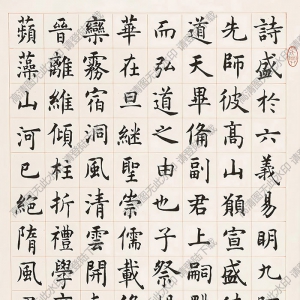 詩盛於六義易明九
先師彼高山顏宣盛
道天畢備副君上嗣
而弘道之由也子祭
華在旦継聖崇儒載
欒霧宿洞風清雲開
晉離維傾柱折禮學
蘋藻山河已絕隋風